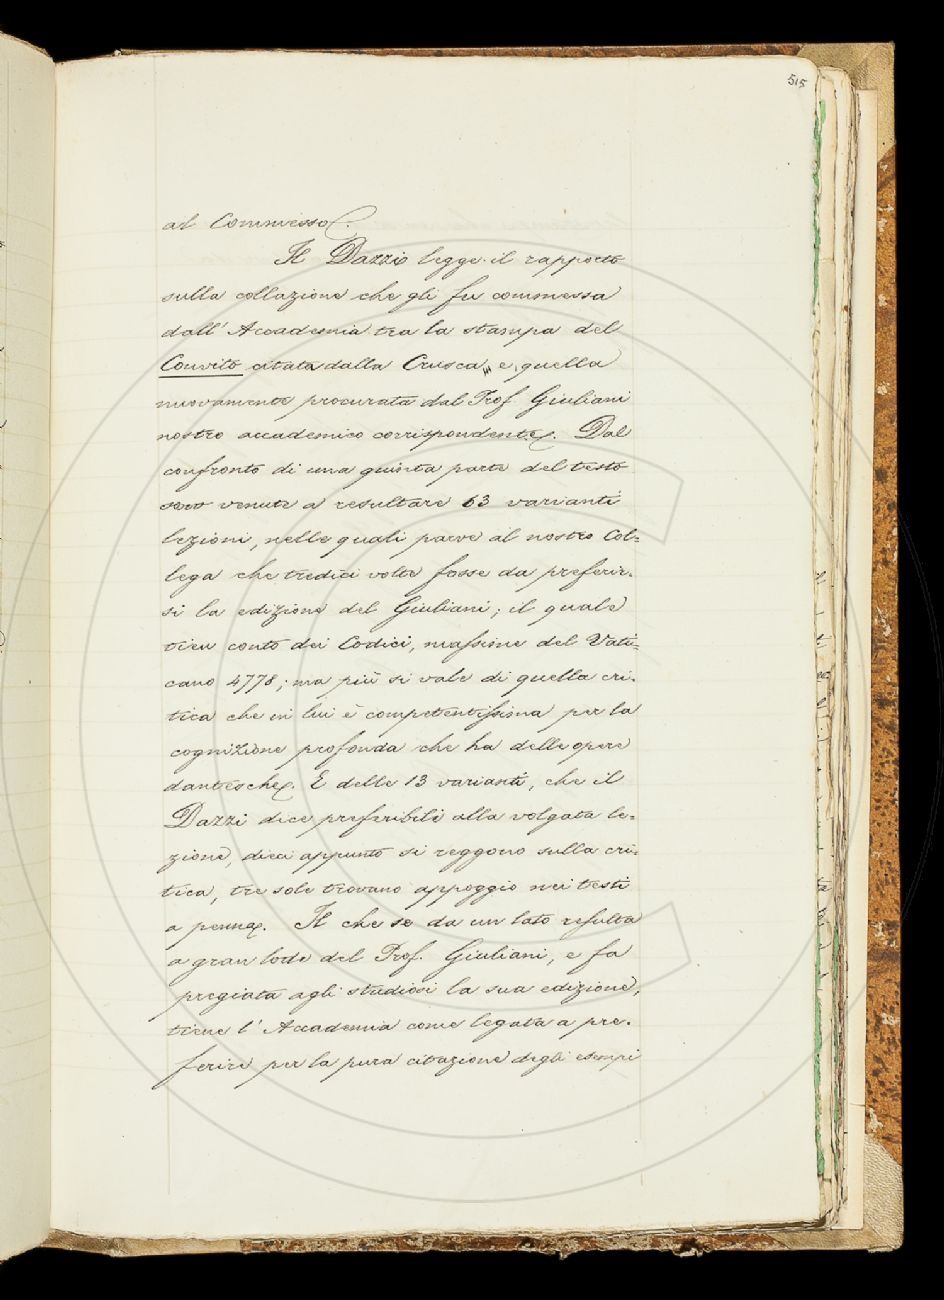 515
al Commesso.
Il Dazzi legge il rapporto
sulla collazione che gli fu commessa
dall' Accademia tra la stampa del
Convito citata dalla Crusca, e quella
nuovamente procurata dal Prof Giuliani
nostro accademico corrispondente. Dal
confronto di una quinta parte del testo
sono venute a resultare 63 varianti
lezioni, nelle quali parve al nostro Col=
lega che tredici volte fosse da preferir-
si la edizione del Giuliani; il quale
tien conto dei Codici, massime del Vati=
cano 4778; ma più si vale di quella cri-
tica che in lui è competentissima per la
cognizione profonda che ha delle opere
dantesche. E delle 13 varianti, che il
Dazzi dice preferibili alla volgata le=
zione, dieci appunto si reggono sulla cri=
tica, tre sole trovano appoggio nei testi
a penna. Il che se da un lato resulta
a gran lode del Prof. Giuliani, e fa
pregiata agli studiosi la sua edizione,
tiene l' Accademia come legata a pre-
ferire per la pura citazione degli esempi